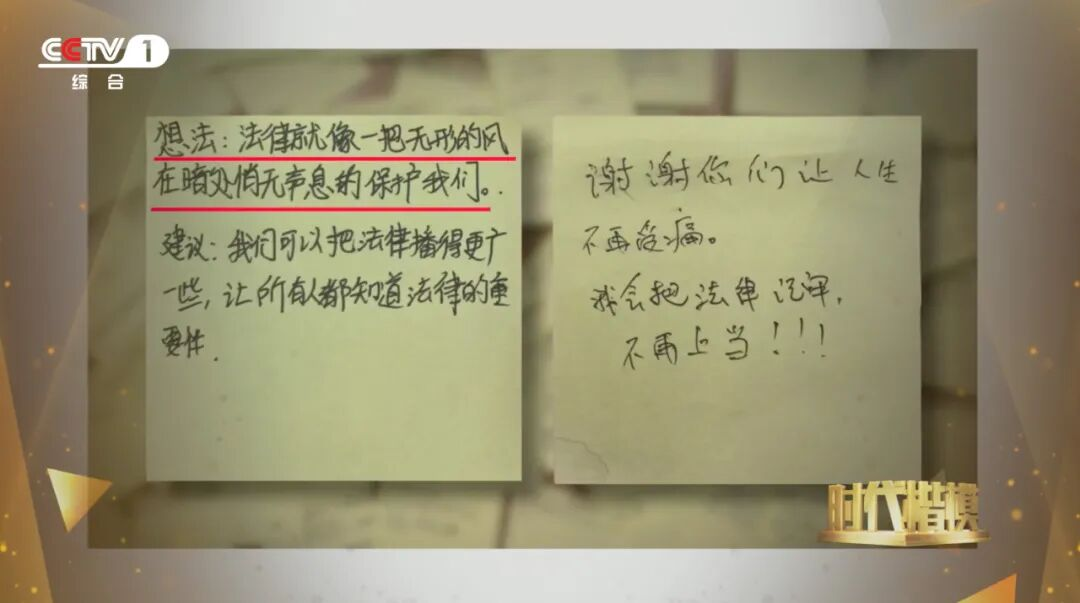 CCTV 1
综合
想法：法律就像一把无形的风
在暗处悄无声息的保护我们。
建议：我们可以把法律播得更广
一些，让所有人都知道法律的重
要性.
谢谢你们让人生
不再受痛。
我会把法律记牢，
不再上当！！！
时代楷模